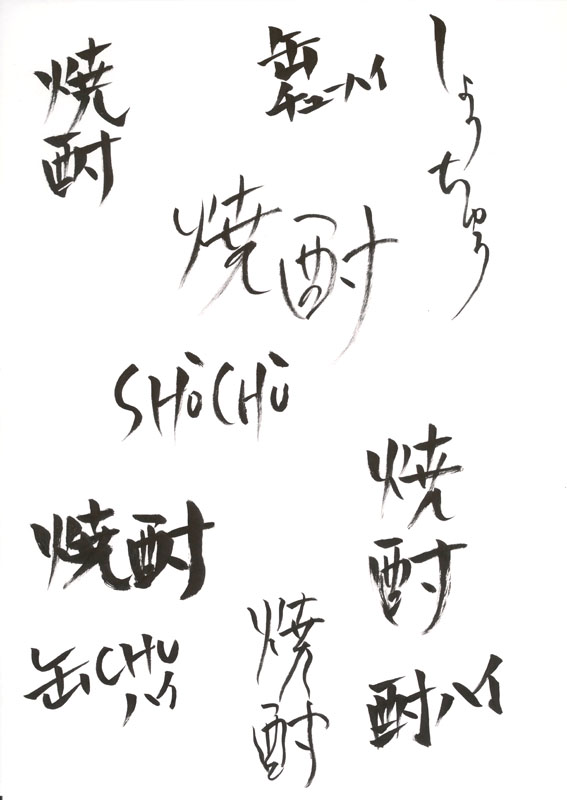 焼酎
缶
チューハイ
しょうちゅう
焼酎
SHŌCHŪ
焼酎
焼酎
缶CHU
ハイ
焼酎
酎ハイ